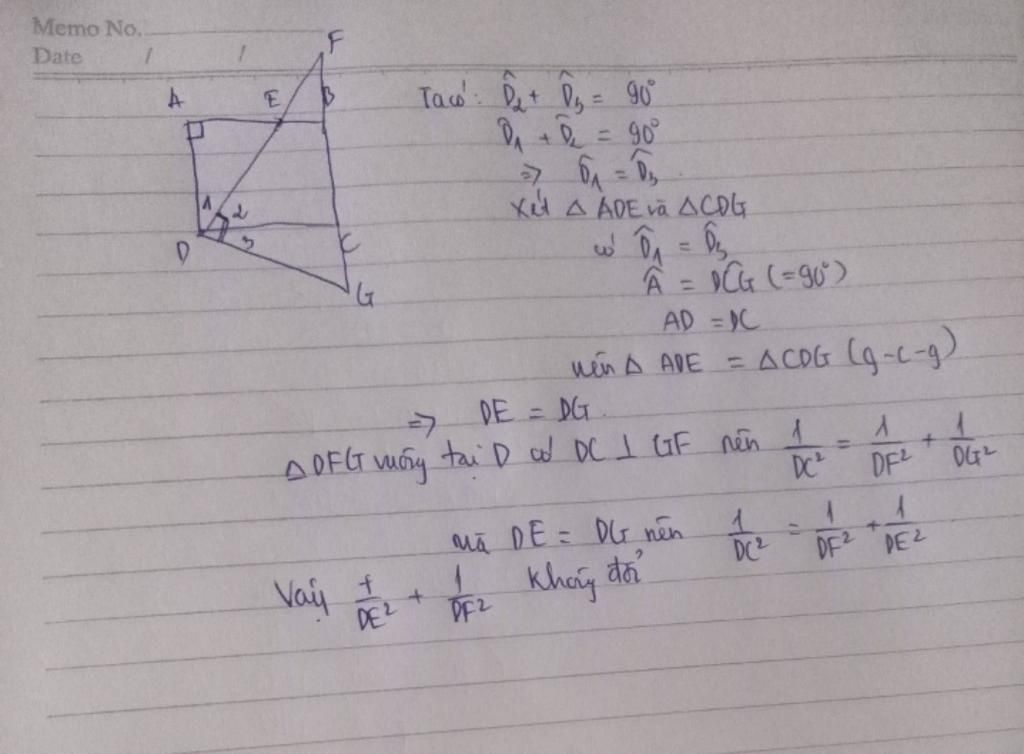 Memo No.
Date / /
F
A E B
1 2
D 3 C
G
Ta có: D̂₂ + D̂₃ = 90°
D̂₁ + D̂₂ = 90°
=> D̂₁ = D̂₃
Xét △ ADE và △CDG
có D̂₁ = D̂₃
Â = DĈG (=90°)
AD = DC
nên △ ADE = △CDG (g-c-g)
=> DE = DG.
△DFG vuông tại D có DC ⊥ GF nên 1/DC² = 1/DF² + 1/DG²
mà DE = DG nên 1/DC² = 1/DF² + 1/DE²
Vậy 1/DE² + 1/DF² không đổi